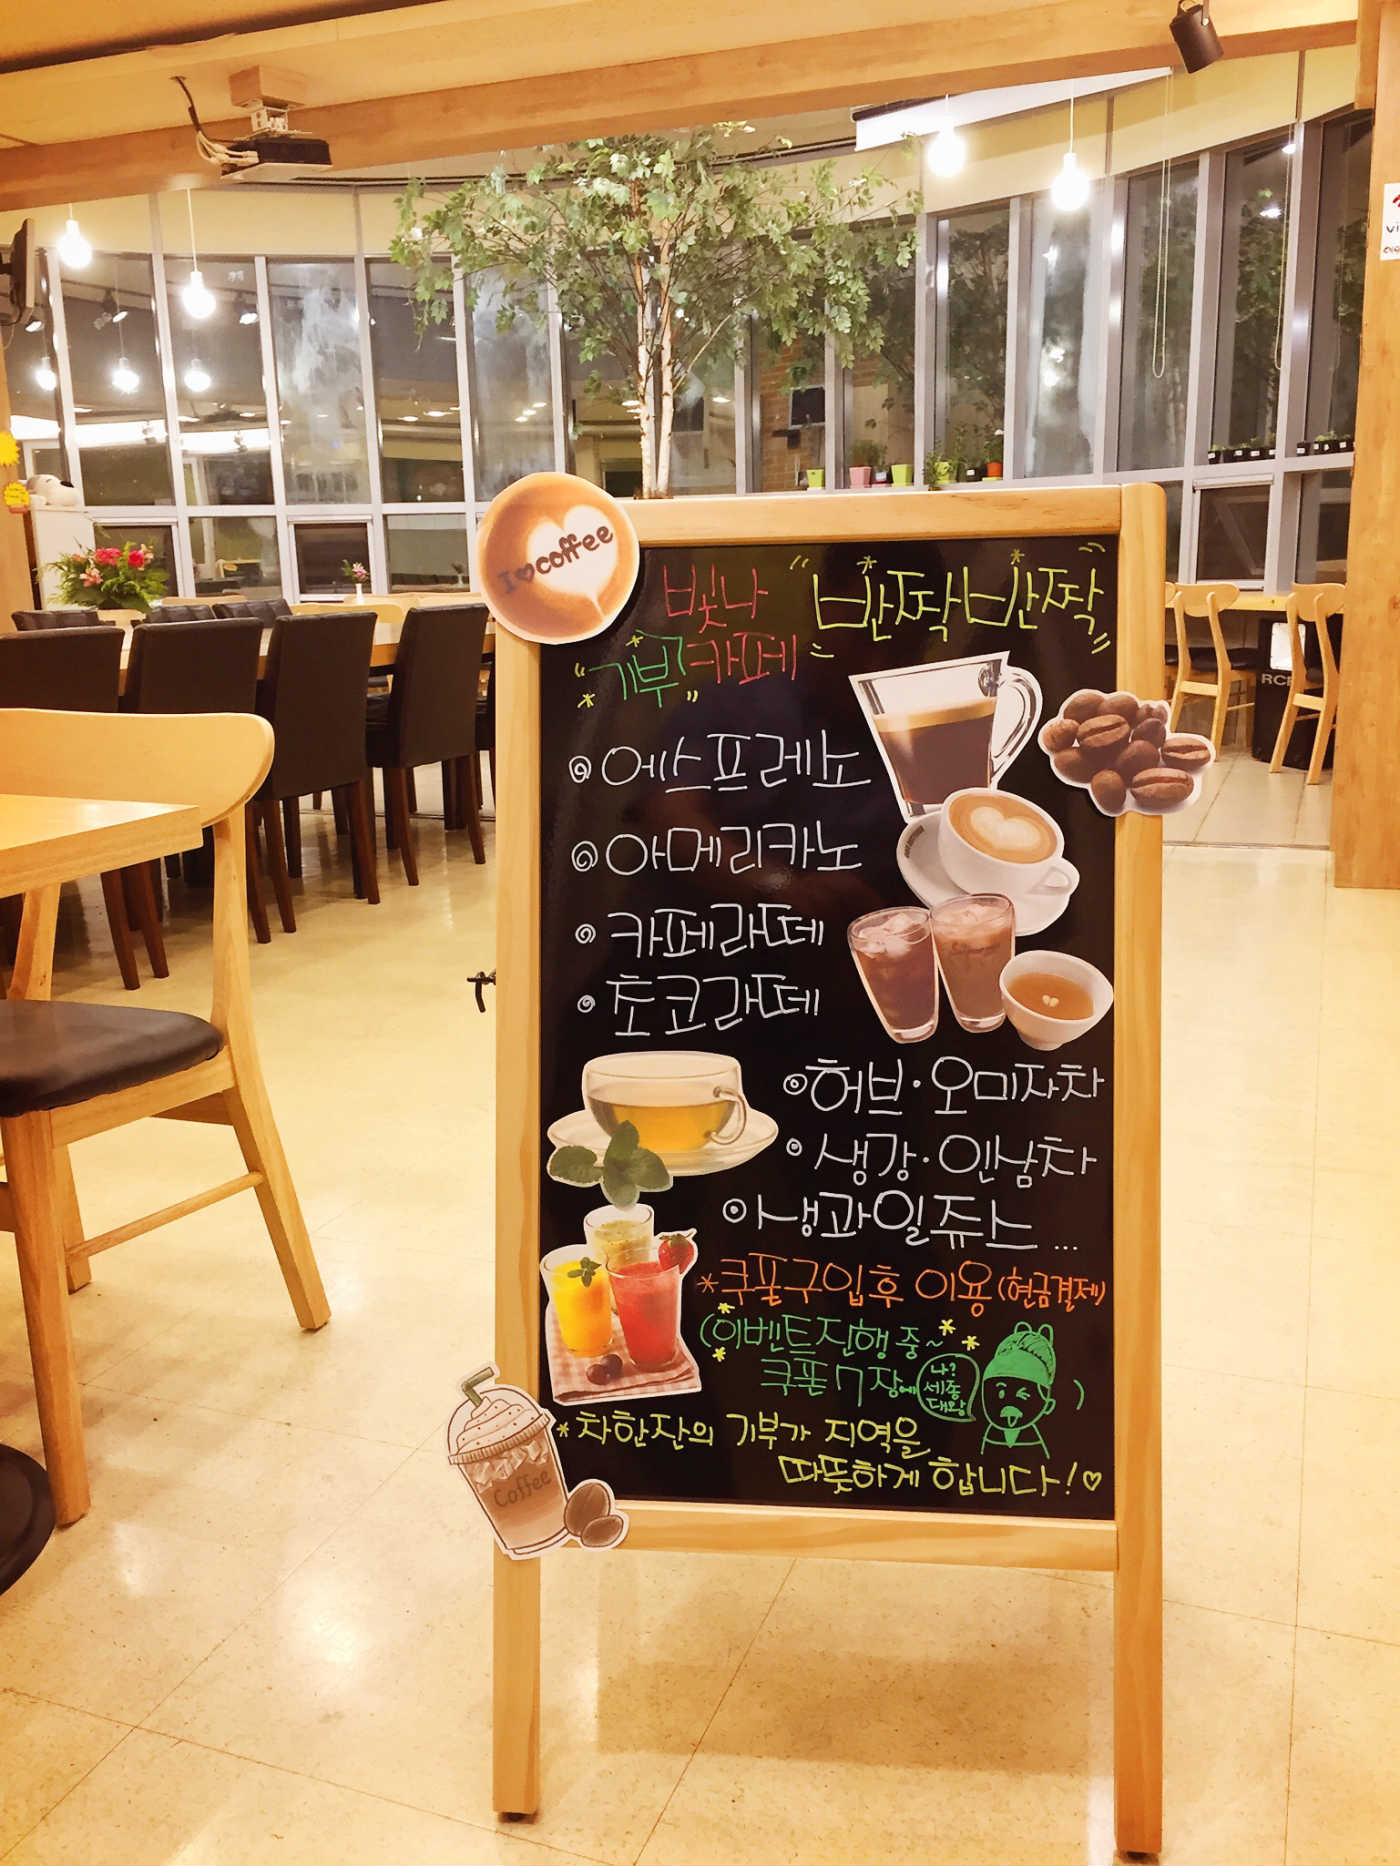 I♥coffee
빛나 "반짝반짝"
"기부"카페
에스프레쏘
아메리카노
카페라떼
초코라떼
허브·오미자차
생강·인삼차
생과일쥬스...
*쿠폰구입후 이용(현금결제)
(이벤트진행 중~
쿠폰 7장에
나?
세종
대왕
)
*차한잔의 기부가 지역을
따뜻하게 합니다!♡
Coffee